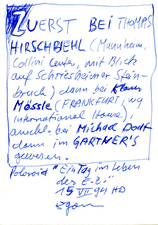 ZUERST BEI THOMPS
HIRSCHBJEHL (Mannheim,
Collini Center, mit Blick
auf Schriesheimer Stein-
bruch) dann bei Klaus
Mössle (FRANKFURT, wg
International House),
auch bei Michael Dorf
dann im GARTNER'S
gewesen.
Polaroid "Ein Tag im Leben
des E.Z."
15 VII 94 HD